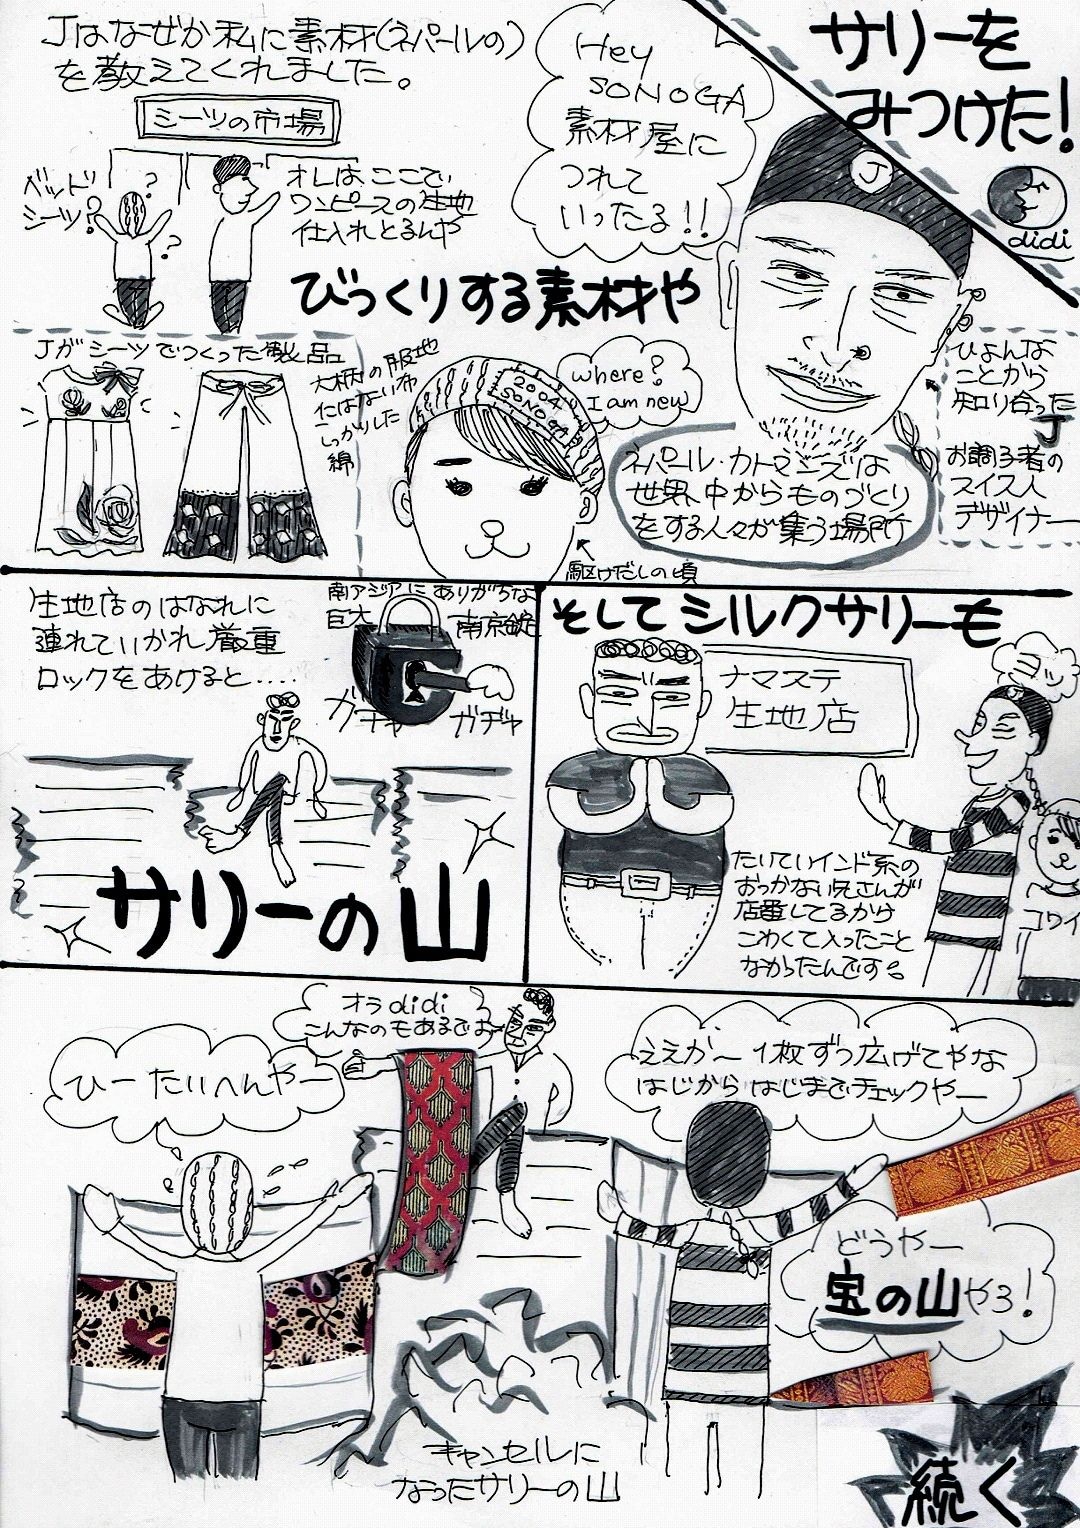 サリーを
みつけた!
didi
Jはなぜか私に素材(ネパールの)
を教えてくれました。
シーツの市場
ベッド
シーツ?
?
?
オレはここで
ワンピースの生地
仕入れとるんや
Hey
SONOGA
素材屋に
つれて
いったる!!
J
びっくりする素材や
Jがシーツでつくった製品
大柄の服地
にはない布
しっかりした
綿
where?
I am new
2004
SONOGA
駆けだしの頃
ひょんな
ことから
知り合った
J
お調子者の
スイス人
デザイナー
ネパール・カトマンズは
世界中からものづくり
をする人々が集う場所
生地店のはなれに
連れていかれ厳重
ロックをあけると....
南アジアにありがちな
巨大 南京錠
ガチャ
ガチャ
サリーの山
そしてシルクサリーも
ナマステ
生地店
たいていインド系の
おっかない兄さんが
店番してるかけ
こわくて入ったこと
なかったんです。
コワイ
オラdidi
こんなのもあるでよ
ひーたいへんやー
ええかー1枚ずつ広げてやな
はじからはじまでチェックやー
どうやー
宝の山やろ!
キャンセルに
なったサリーの山
続く